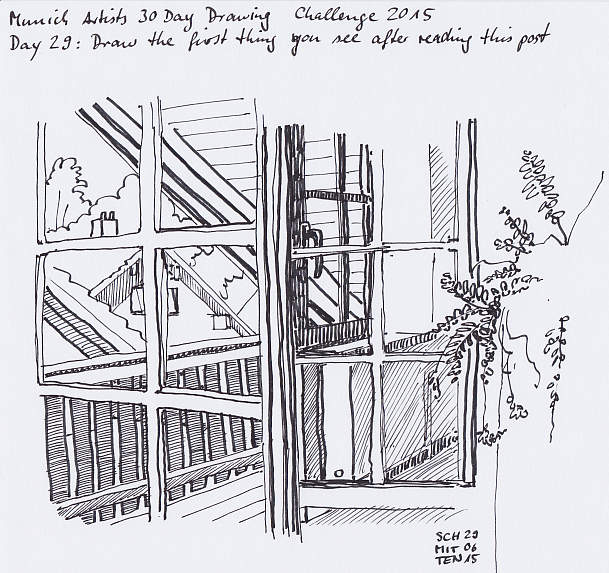 Munich Artists 30 Day Drawing Challenge 2015
Day 29: Draw the first thing you see after reading this post
SCH 29
MIT 06
TEN 15